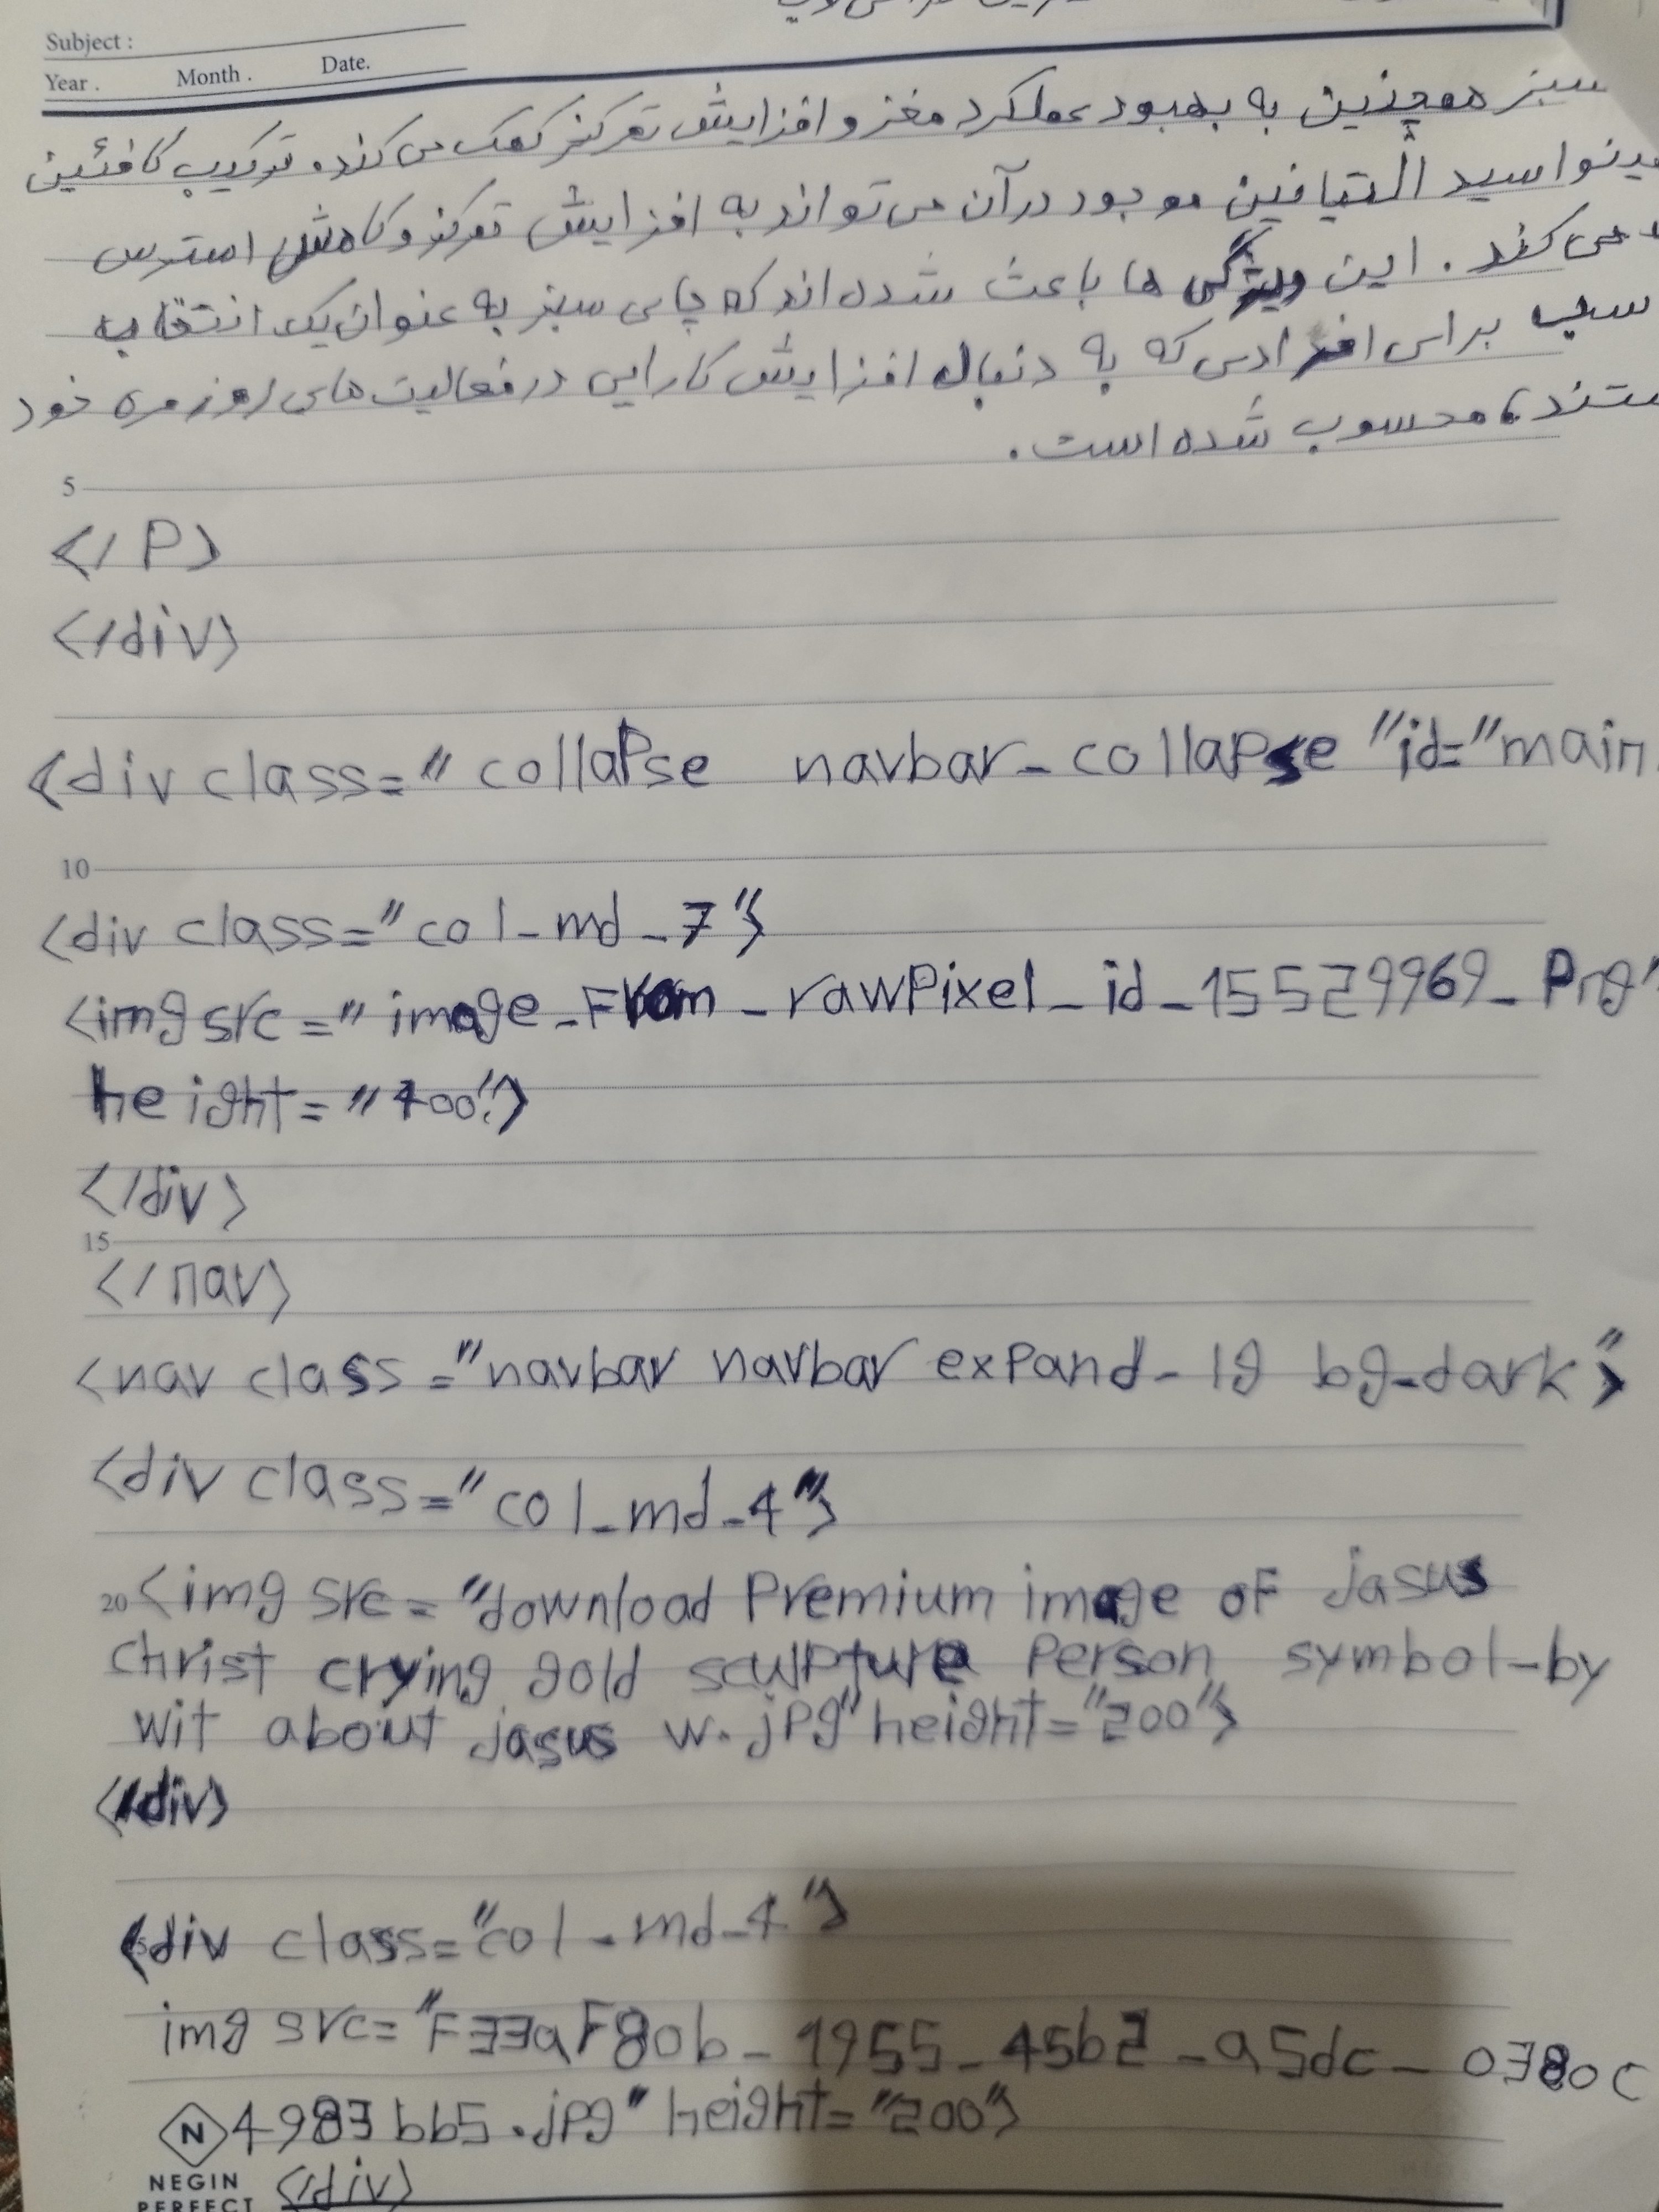 Subject :
Year . Month . Date.
سبز همچنین به بهبود عملکرد مغز و افزایش تمرکز کمک می کنده ترکیب کافئین
مینواسید التیافین موجود درآن می تواند به افزایش تمرکز و کاهش استرس
می کند . این ویژگی ها باعث شده اند که چای سبز به عنوان یک انتخاب
سب برای افرادی که به دنبال افزایش کارایی در فعالیت های روزمره خود
ستند، محسوب شده است .
5
</P>
</div>
<div class=" collapse navbar_collapse "id="main
10
<div class="col_md_7">
<img src=" image_From_rawPixel_id_15529969_Png"
height="400">
</div>
15
</nav>
<nav class="navbar navbar expand_lg bg_dark">
<div class="col_md_4">
20 <img src="download Premium image of jasus
christ crying gold sculpture Person symbol_by
wit about jasus w.jpg"height="200">
</div>
<div class="col_md_4">
img src="F33aF80b_1955_45b2_a5dc_0380c
4983bb5.jpg" height="200">
N
NEGIN
PERFECT
</div>